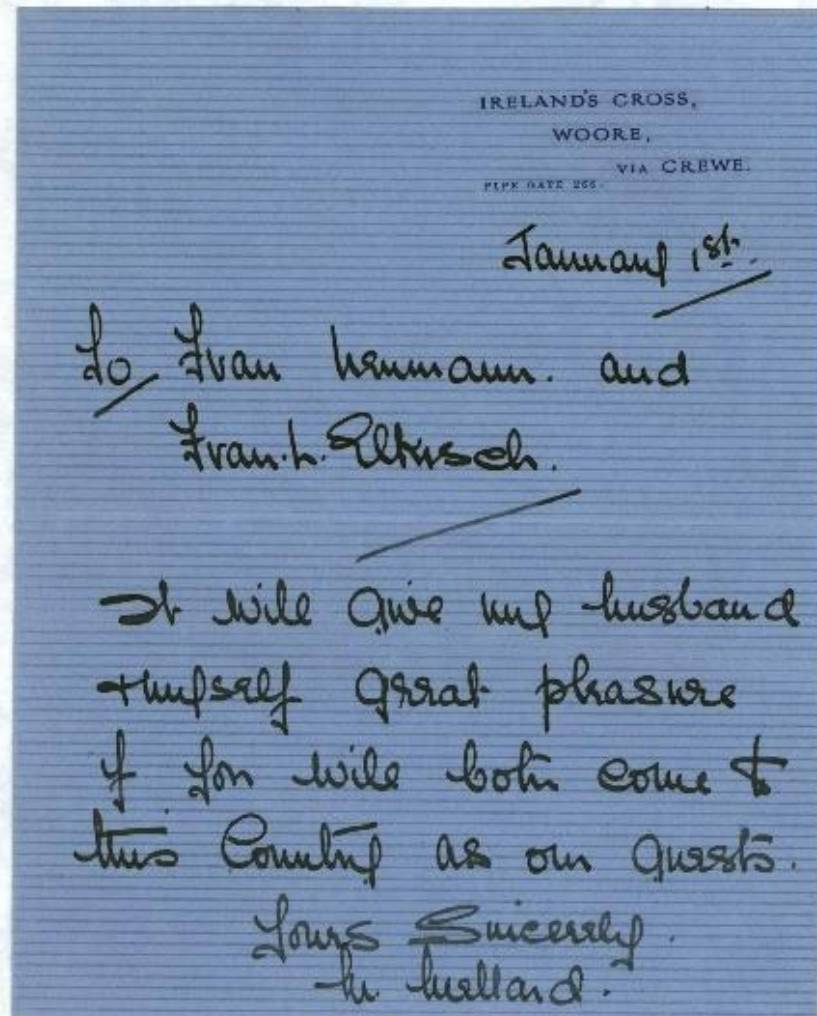 IRELAND'S CROSS,
WOORE,
VIA CREWE.
PIPE GATE 266.
January 1st.
To Frau Neumann. and
Frau. L. Elkisch.
It will give my husband
+ myself great pleasure
if you will both come to
this Country as our guests.
Yours Sincerely.
M. Mellard.